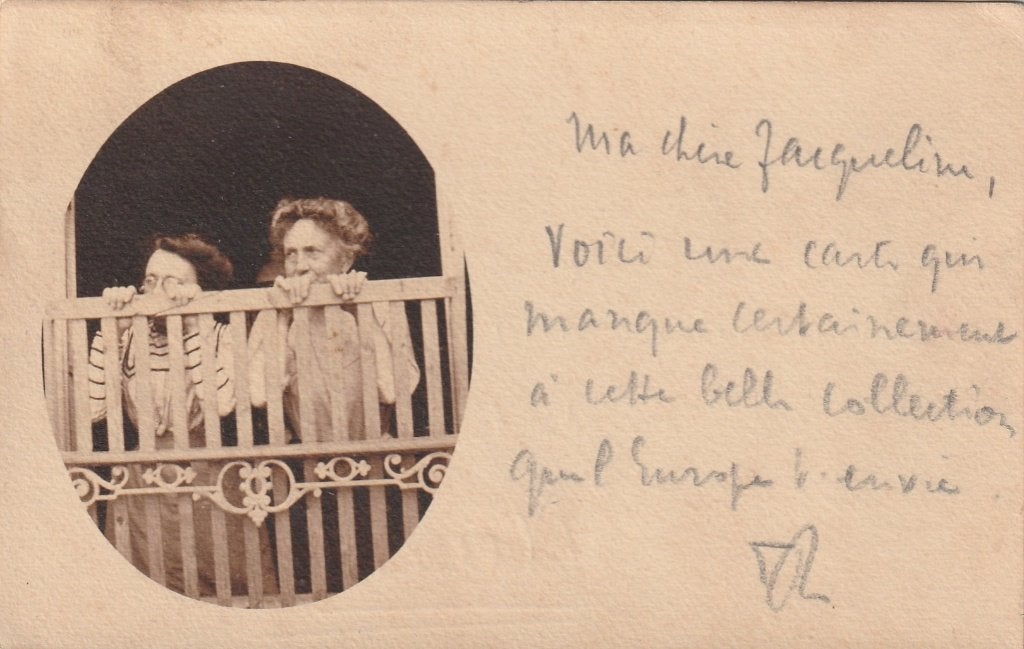 Ma chère Jacqueline,
Voici une carte qui
manque certainement
à cette belle collection
que l'Europe t'envie.